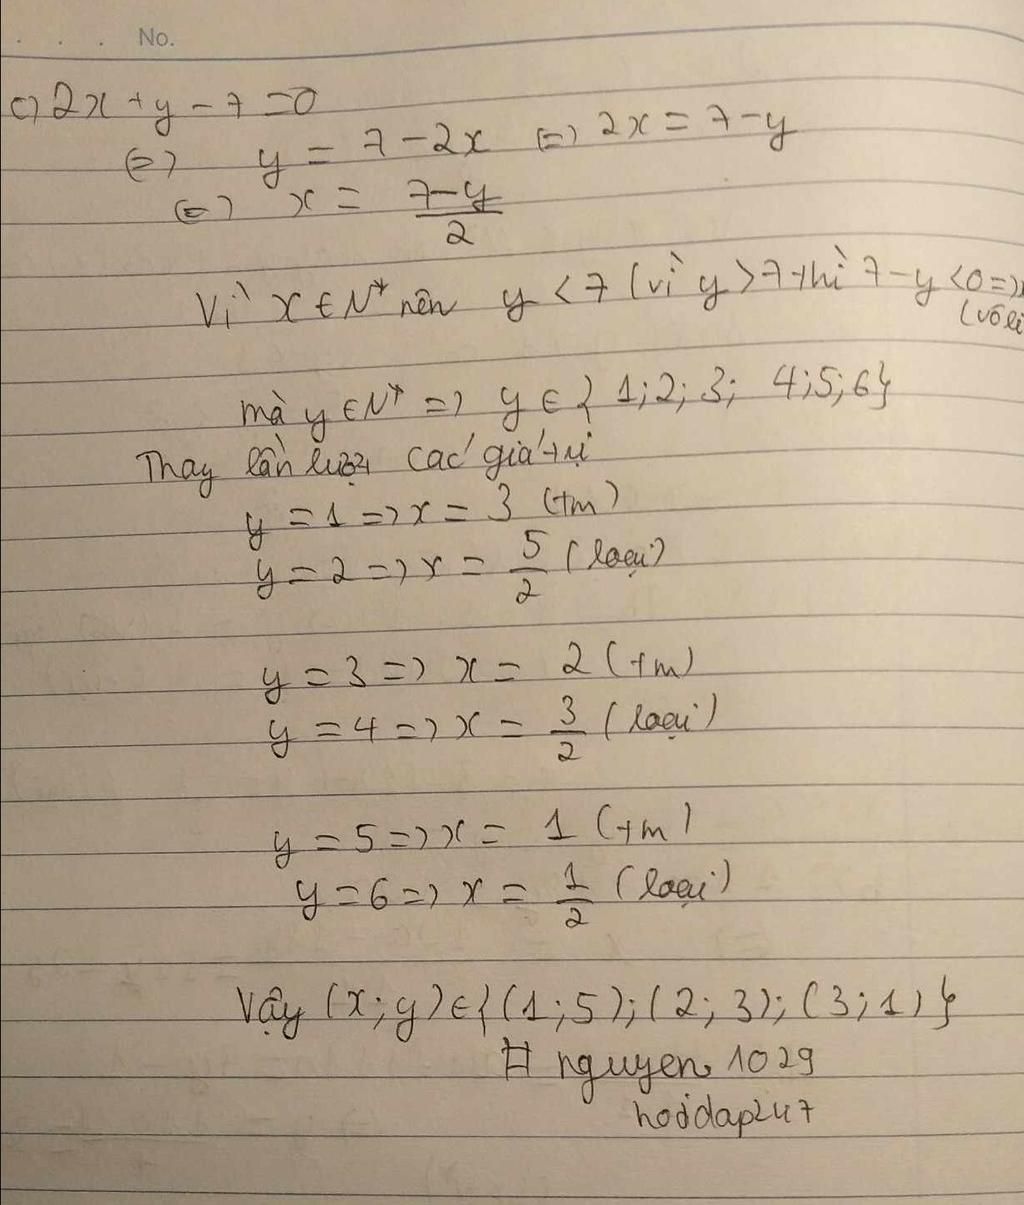 No.
c) 2x + y - 7 = 0
(=) y = 7 - 2x (=) 2x = 7 - y
(=) x = \frac{7-y}{2}
Vì x ∈ N* nên y < 7 (vì y > 7 thì 7 - y < 0 =)
(vô lí
mà y ∈ N* => y ∈ { 1; 2; 3; 4; 5; 6}
Thay lần lượt các giá trị
y = 1 => x = 3 (tm)
y = 2 => x = \frac{5}{2} (loại)
y = 3 => x = 2 (tm)
y = 4 => x = \frac{3}{2} (loại)
y = 5 => x = 1 (tm)
y = 6 => x = \frac{1}{2} (loại)
Vậy (x; y) ∈ {(1; 5); (2; 3); (3; 1)}
# nguyen 1029
hoidap247